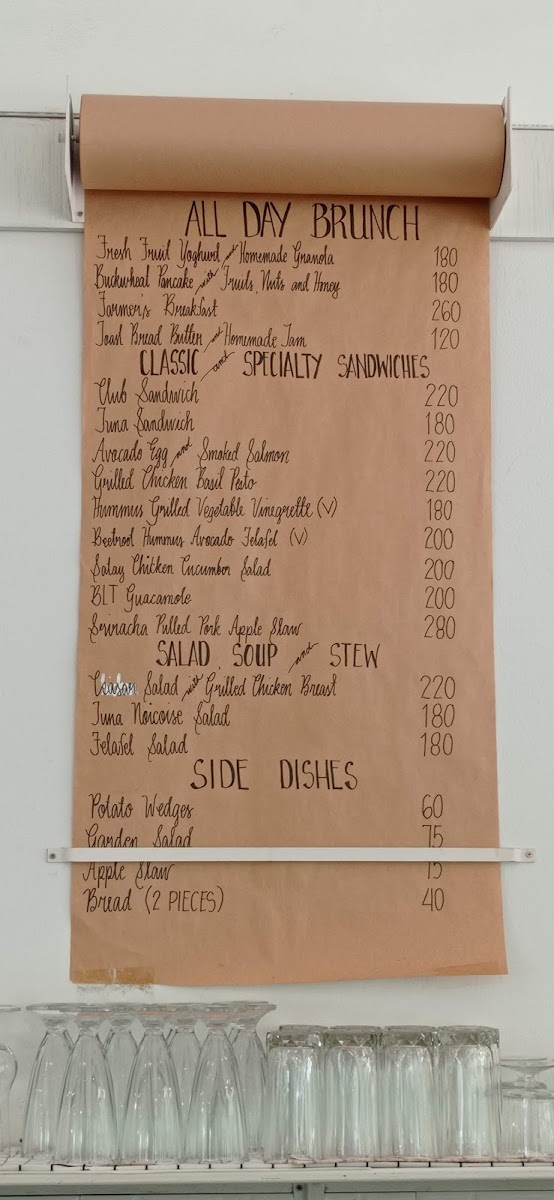 ALL DAY BRUNCH
Fresh Fruit Yoghurt and Homemade Granola 180
Buckwheat Pancake with Fruits, Nuts and Honey 180
Farmer's Breakfast 260
Toast Bread Butter and Homemade Jam 120
CLASSIC and SPECIALTY SANDWICHES
Club Sandwich 220
Tuna Sandwich 180
Avocado Egg and Smoked Salmon 220
Grilled Chicken Basil Pesto 220
Hummus Grilled Vegetable Vinegrette (V) 180
Beetroot Hummus Avocado Felafel (V) 200
Satay Chicken Cucumber Salad 200
BLT Guacamole 200
Sriracha Pulled Pork Apple Slaw 280
SALAD, SOUP and STEW
Salad with Grilled Chicken Breast 220
Tuna Noicoise Salad 180
Felafel Salad 180
SIDE DISHES
Potato Wedges 60
Garden Salad 75
Apple Slaw
Bread (2 PIECES) 40